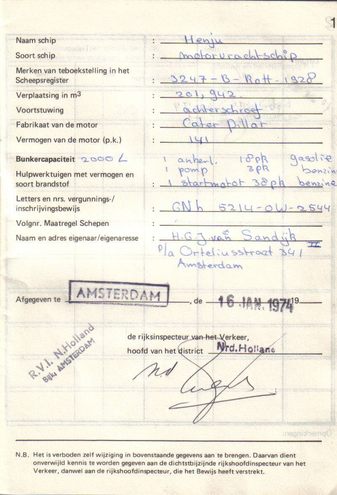 1
Naam schip : Henju
Soort schip : motorvrachtschip
Merken van teboekstelling in het
Scheepsregister : 3247-B-Rott-1928
Verplaatsing in m3 : 201,942
Voortstuwing : achterschroef
Fabrikaat van de motor : Cater pillar
Vermogen van de motor (p.k.) : 141
Bunkercapaciteit 2000 L : 1 ankerl. 18pk gasolie
Hulpwerktuigen met vermogen en 1 pomp 3pk benzine
soort brandstof : 1 startmotor 38pk benzine
Letters en nrs. vergunnings-/
inschrijvingsbewijs : GNh 5214-OW-2544
Volgnr. Maatregel Schepen :
Naam en adres eigenaar/eigenaresse : H.G.J. van Sandijk II
p/a Orteliusstraat 341
Amsterdam
Afgegeven te AMSTERDAM , de 16 JAN. 1974 19
de rijksinspecteur van het Verkeer,
hoofd van het district Nrd.Holland
R.V.I. N.Holland
Bijk. AMSTERDAM
N.B. Het is verboden zelf wijziging in bovenstaande gegevens aan te brengen. Daarvan dient
onverwijld kennis te worden gegeven aan de dichtstbijzijnde rijkshoofdinspecteur van het
Verkeer, danwel aan de rijkshoofdinspecteur, die het Bewijs heeft verstrekt.